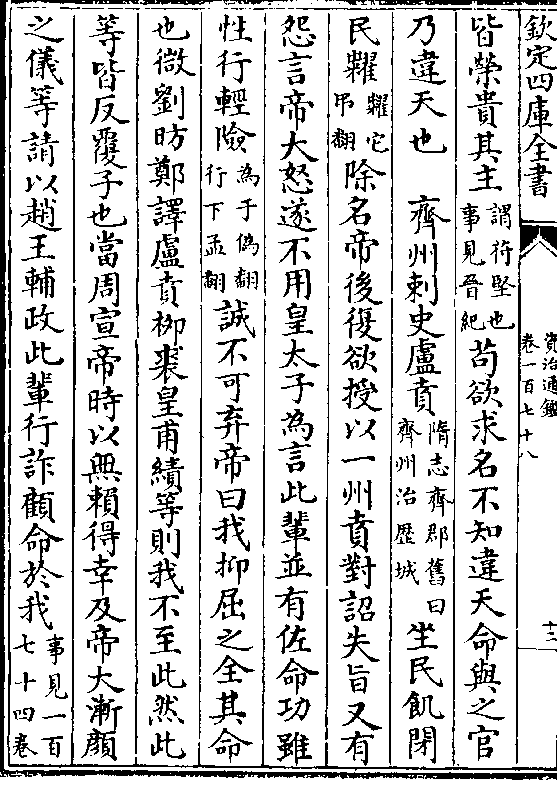 欽定四庫全書
資治通鑑
卷一百七十八
十三
皆榮貴其主謂苻堅也事見晉紀苟欲求名不知違天命與之官
乃違天也　齊州刺史盧賁隋志齊郡舊曰齊州治歷城坐民飢閉
民糶糶它弔翻除名帝後復欲授以一州賁對詔失旨又有
怨言帝大怒遂不用皇太子為言此輩並有佐命功雖
性行輕險為于偽翻行下孟翻誠不可弃帝曰我抑屈之全其命
也微劉昉鄭譯盧賁栁裘皇甫績等則我不至此然此
等皆反覆子也當周宣帝時以無賴得幸及帝大漸顔
之儀等請以趙王輔政此輩行詐顧命於我事見一百七十四卷